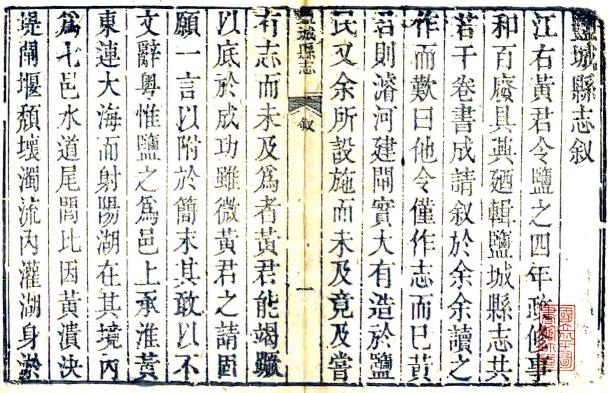 鹽城縣志叙
江右黃君令鹽之四年政修事
和百廢具興廼輯鹽城縣志共
若干卷書成請叙於余余讀之
作而歎曰他令僅作志而已黃
君則濬河建閘實大有造於鹽
民又余所設施而未及竟及嘗
鹽城縣志
叙
一
有志而未及爲者黃君能竭蹶
以底於成功雖微黃君之請固
願一言以附於簡末其敢以不
文辭粤惟鹽之爲邑上承淮黃
東連大海而射陽湖在其境內
爲七邑水道尾閭比因黃潰決
堤閘堰頹壞濁流內灌湖身淤